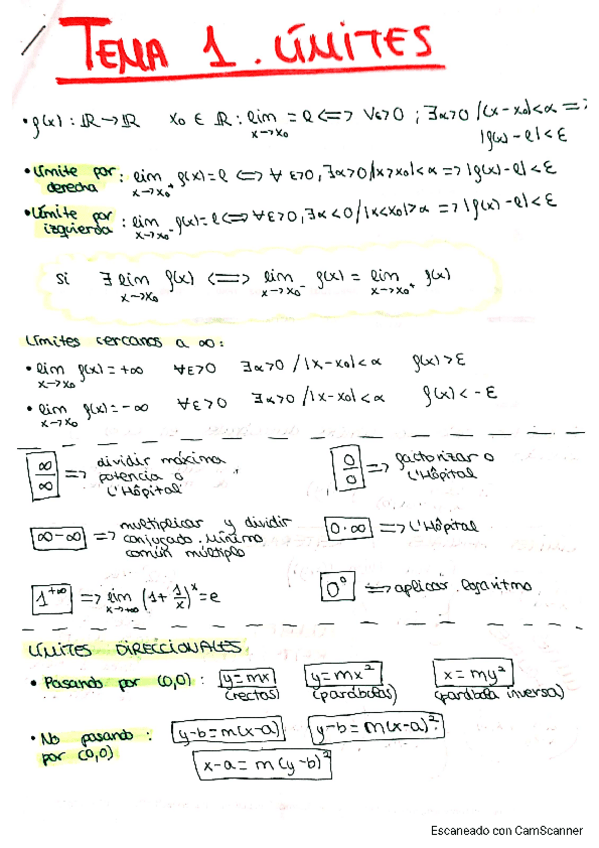 TEMA 1. LÍMITES
• f(x): ℝ → ℝ x₀ ∈ ℝ: lim x→x₀ = l <=> ∀ε>0 ; ∃α>0 /(x-x₀|<α =>
|f(x)-l|<ε
• Límite por derecha: lim x→x₀⁺ f(x)=l <=> ∀ ε>0, ∃α>0/|x>x₀|<α => |f(x)-l|<ε
• Límite por izquierda: lim x→x₀⁻ f(x)=l <=> ∀ε>0, ∃α<0/|x<x₀|>α => |f(x)-l|<ε
Si ∃ lim x→x₀ f(x) <=> lim x→x₀⁻ f(x) = lim x→x₀⁺ f(x)
Límites cercanos a ∞:
• lim x→x₀ f(x)=+∞ ∀ε>0 ∃α>0 /|x-x₀|<α f(x)>ε
• lim x→x₀ f(x)=-∞ ∀ε>0 ∃α>0 /|x-x₀|<α f(x)<-ε
∞/∞ => dividir máxima potencia o L'Hôpital
0/0 => factorizar o L'Hôpital
∞-∞ => multiplicar y dividir conjugado. Mínimo común múltiplo
0·∞ => L'Hôpital
1^+∞ => lim x→+∞ (1+1/x)^x = e
0⁰ => aplicar logaritmo
LÍMITES DIRECCIONALES
• Pasando por (0,0): y=mx (rectas) y=mx² (parábolas) x=my² (parábola inversa)
• No pasando por (0,0): y-b=m(x-a) y-b=m(x-a)²
x-a=m(y-b)²
Escaneado con CamScanner